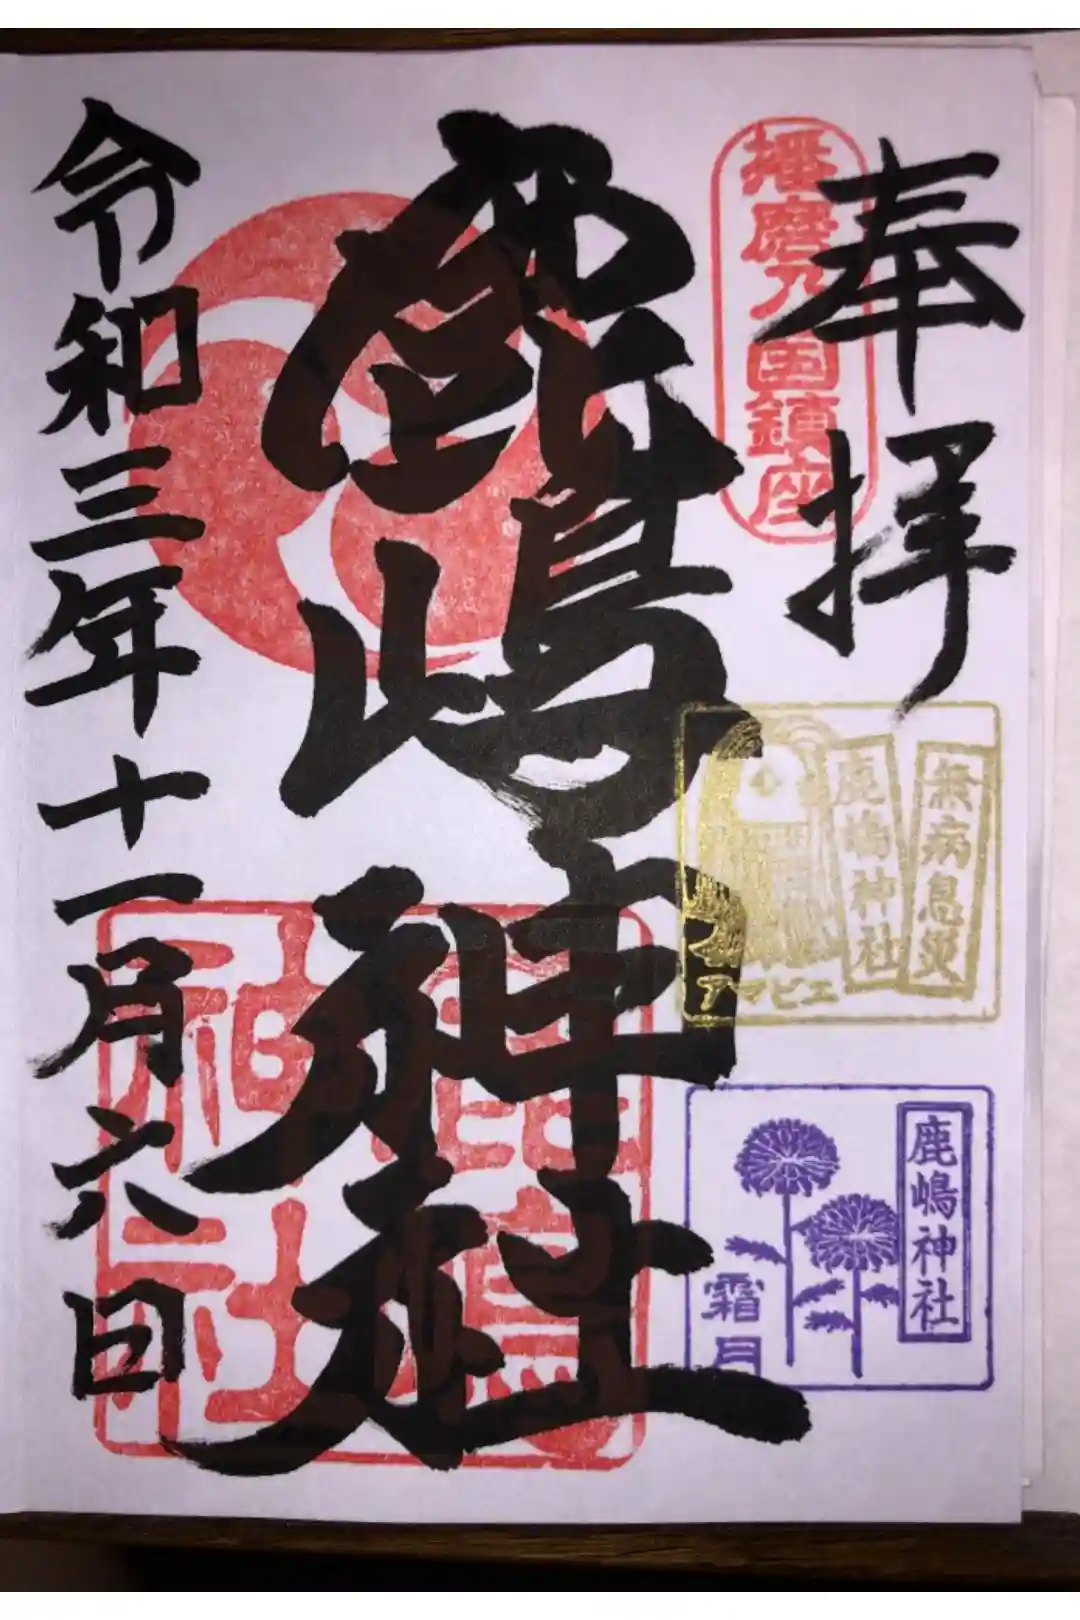 奉拝
播磨乃国鎮座
鹿嶋神社
令和三年十一月六日
無病息災
鹿嶋神社
アマビエ
鹿嶋神社
霜月
鹿嶋
神社